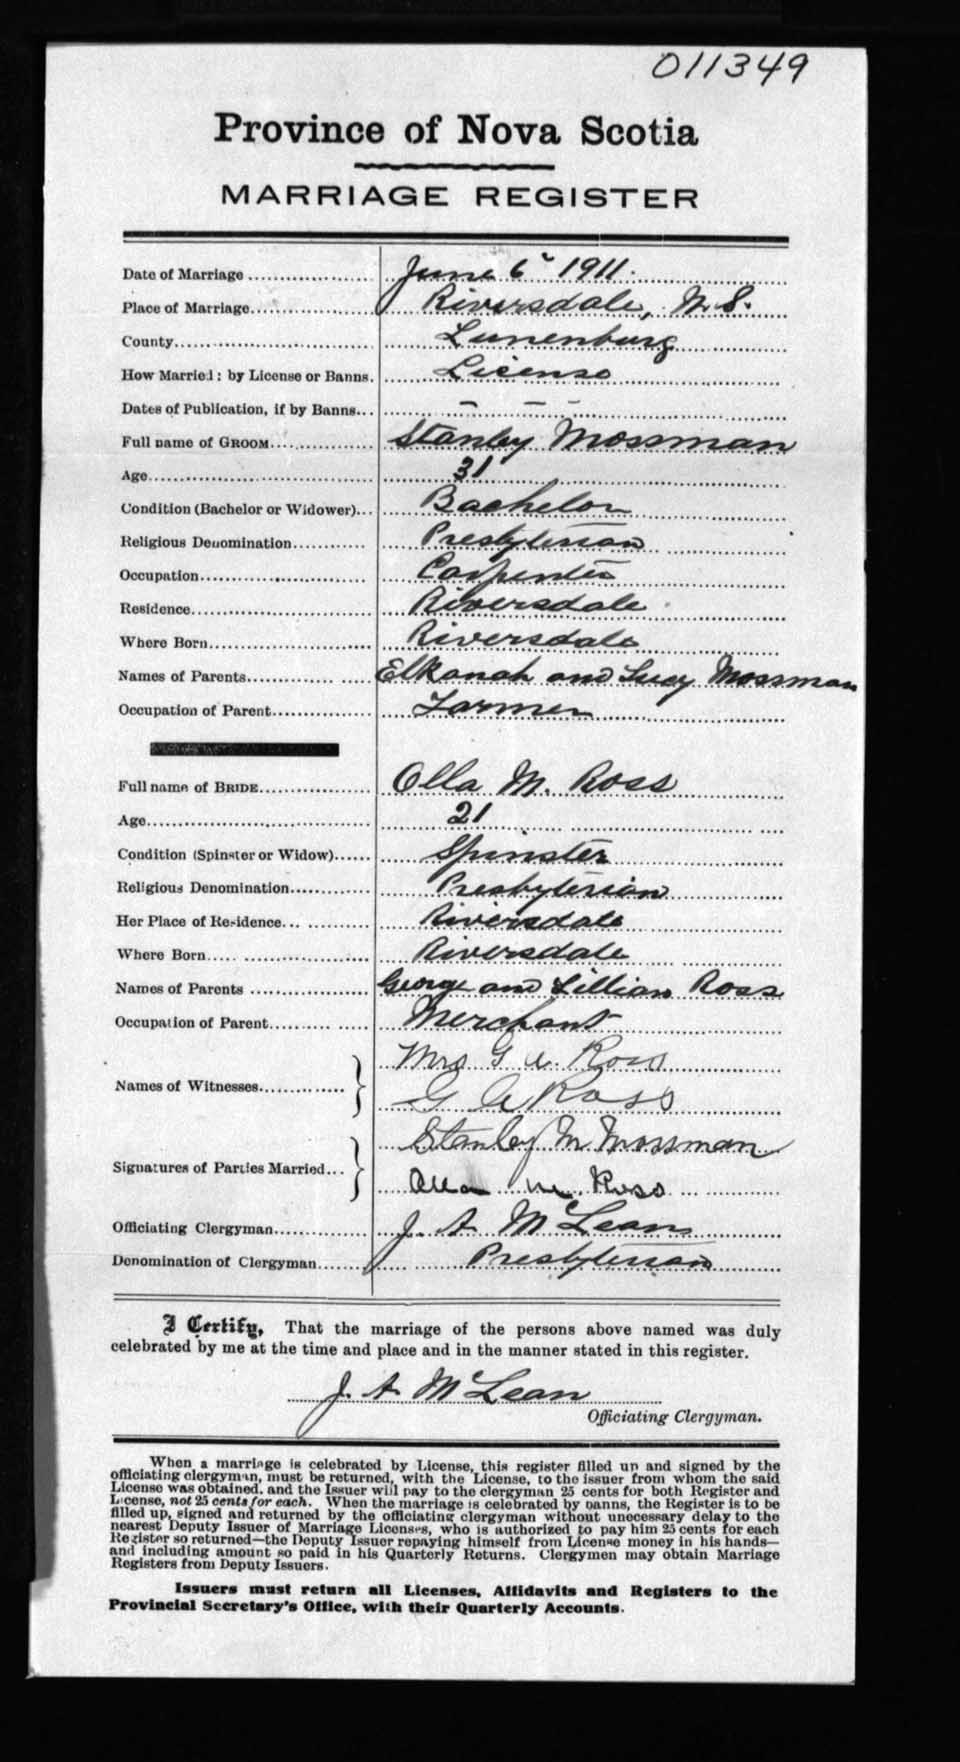 011349
Province of Nova Scotia
MARRIAGE REGISTER
Date of Marriage June 6" 1911.
Place of Marriage Riversdale, N. S.
County Lunenburg
How Married: by License or Banns. License
Dates of Publication, if by Banns... - - -
Full name of GROOM Stanley Mossman
Age 31
Condition (Bachelor or Widower)... Bachelor
Religious Denomination Presbyterian
Occupation Carpenter
Residence Riversdale
Where Born Riversdale
Names of Parents Elkanah and Lucy Mossman
Occupation of Parent Farmer
Full name of BRIDE Olla M. Ross
Age 21
Condition (Spinster or Widow) Spinster
Religious Denomination Presbyterian
Her Place of Residence Riversdale
Where Born Riversdale
Names of Parents George and Lillian Ross
Occupation of Parent Merchant
Names of Witnesses Mrs G A Ross
G A Ross
Signatures of Parties Married... Stanley M Mossman
Olla M. Ross
Officiating Clergyman J. A. McLean
Denomination of Clergyman Presbyterian
I Certify, That the marriage of the persons above named was duly
celebrated by me at the time and place and in the manner stated in this register.
J. A. McLean
Officiating Clergyman.
When a marriage is celebrated by License, this register filled up and signed by the
officiating clergyman, must be returned, with the License, to the issuer from whom the said
License was obtained. and the Issuer will pay to the clergyman 25 cents for both Register and
License, not 25 cents for each. When the marriage is celebrated by banns, the Register is to be
filled up, signed and returned by the officiating clergyman without unecessary delay to the
nearest Deputy Issuer of Marriage Licenses, who is authorized to pay him 25 cents for each
Register so returned—the Deputy Issuer repaying himself from License money in his hands—
and including amount so paid in his Quarterly Returns. Clergymen may obtain Marriage
Registers from Deputy Issuers.
Issuers must return all Licenses, Affidavits and Registers to the
Provincial Secretary's Office, with their Quarterly Accounts.